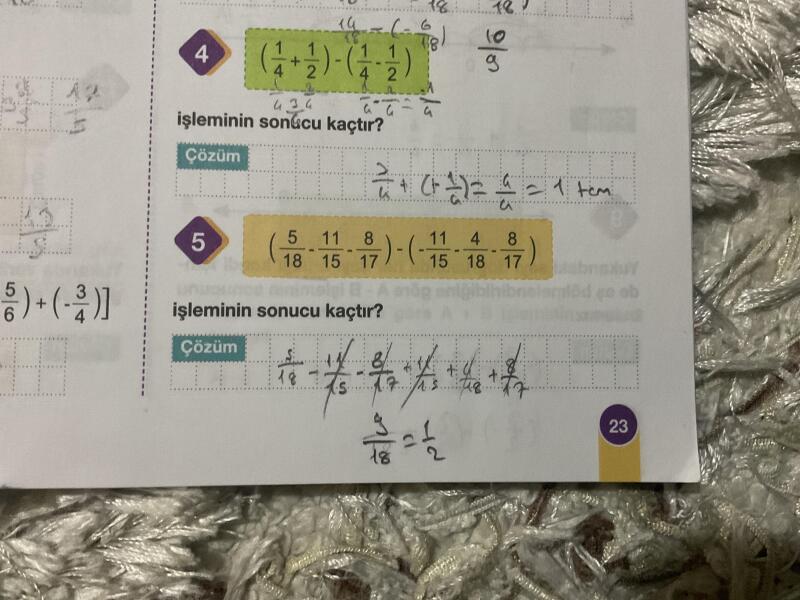 14/18 - (- 6/18)
10/9
4 (1/4 + 1/2) - (1/4 - 1/2)
1/4 2/4 1/4 - 2/4 = -1/4
3/4
işleminin sonucu kaçtır?
Çözüm
3/4 + (+ 1/4) = 4/4 = 1 tam
5 (5/18 - 11/15 - 8/17) - (- 11/15 - 4/18 - 8/17)
işleminin sonucu kaçtır?
Çözüm
5/18 - 11/15 - 8/17 + 11/15 + 4/18 + 8/17
9/18 = 1/2
23
13/5
5/6) + (- 3/4)]